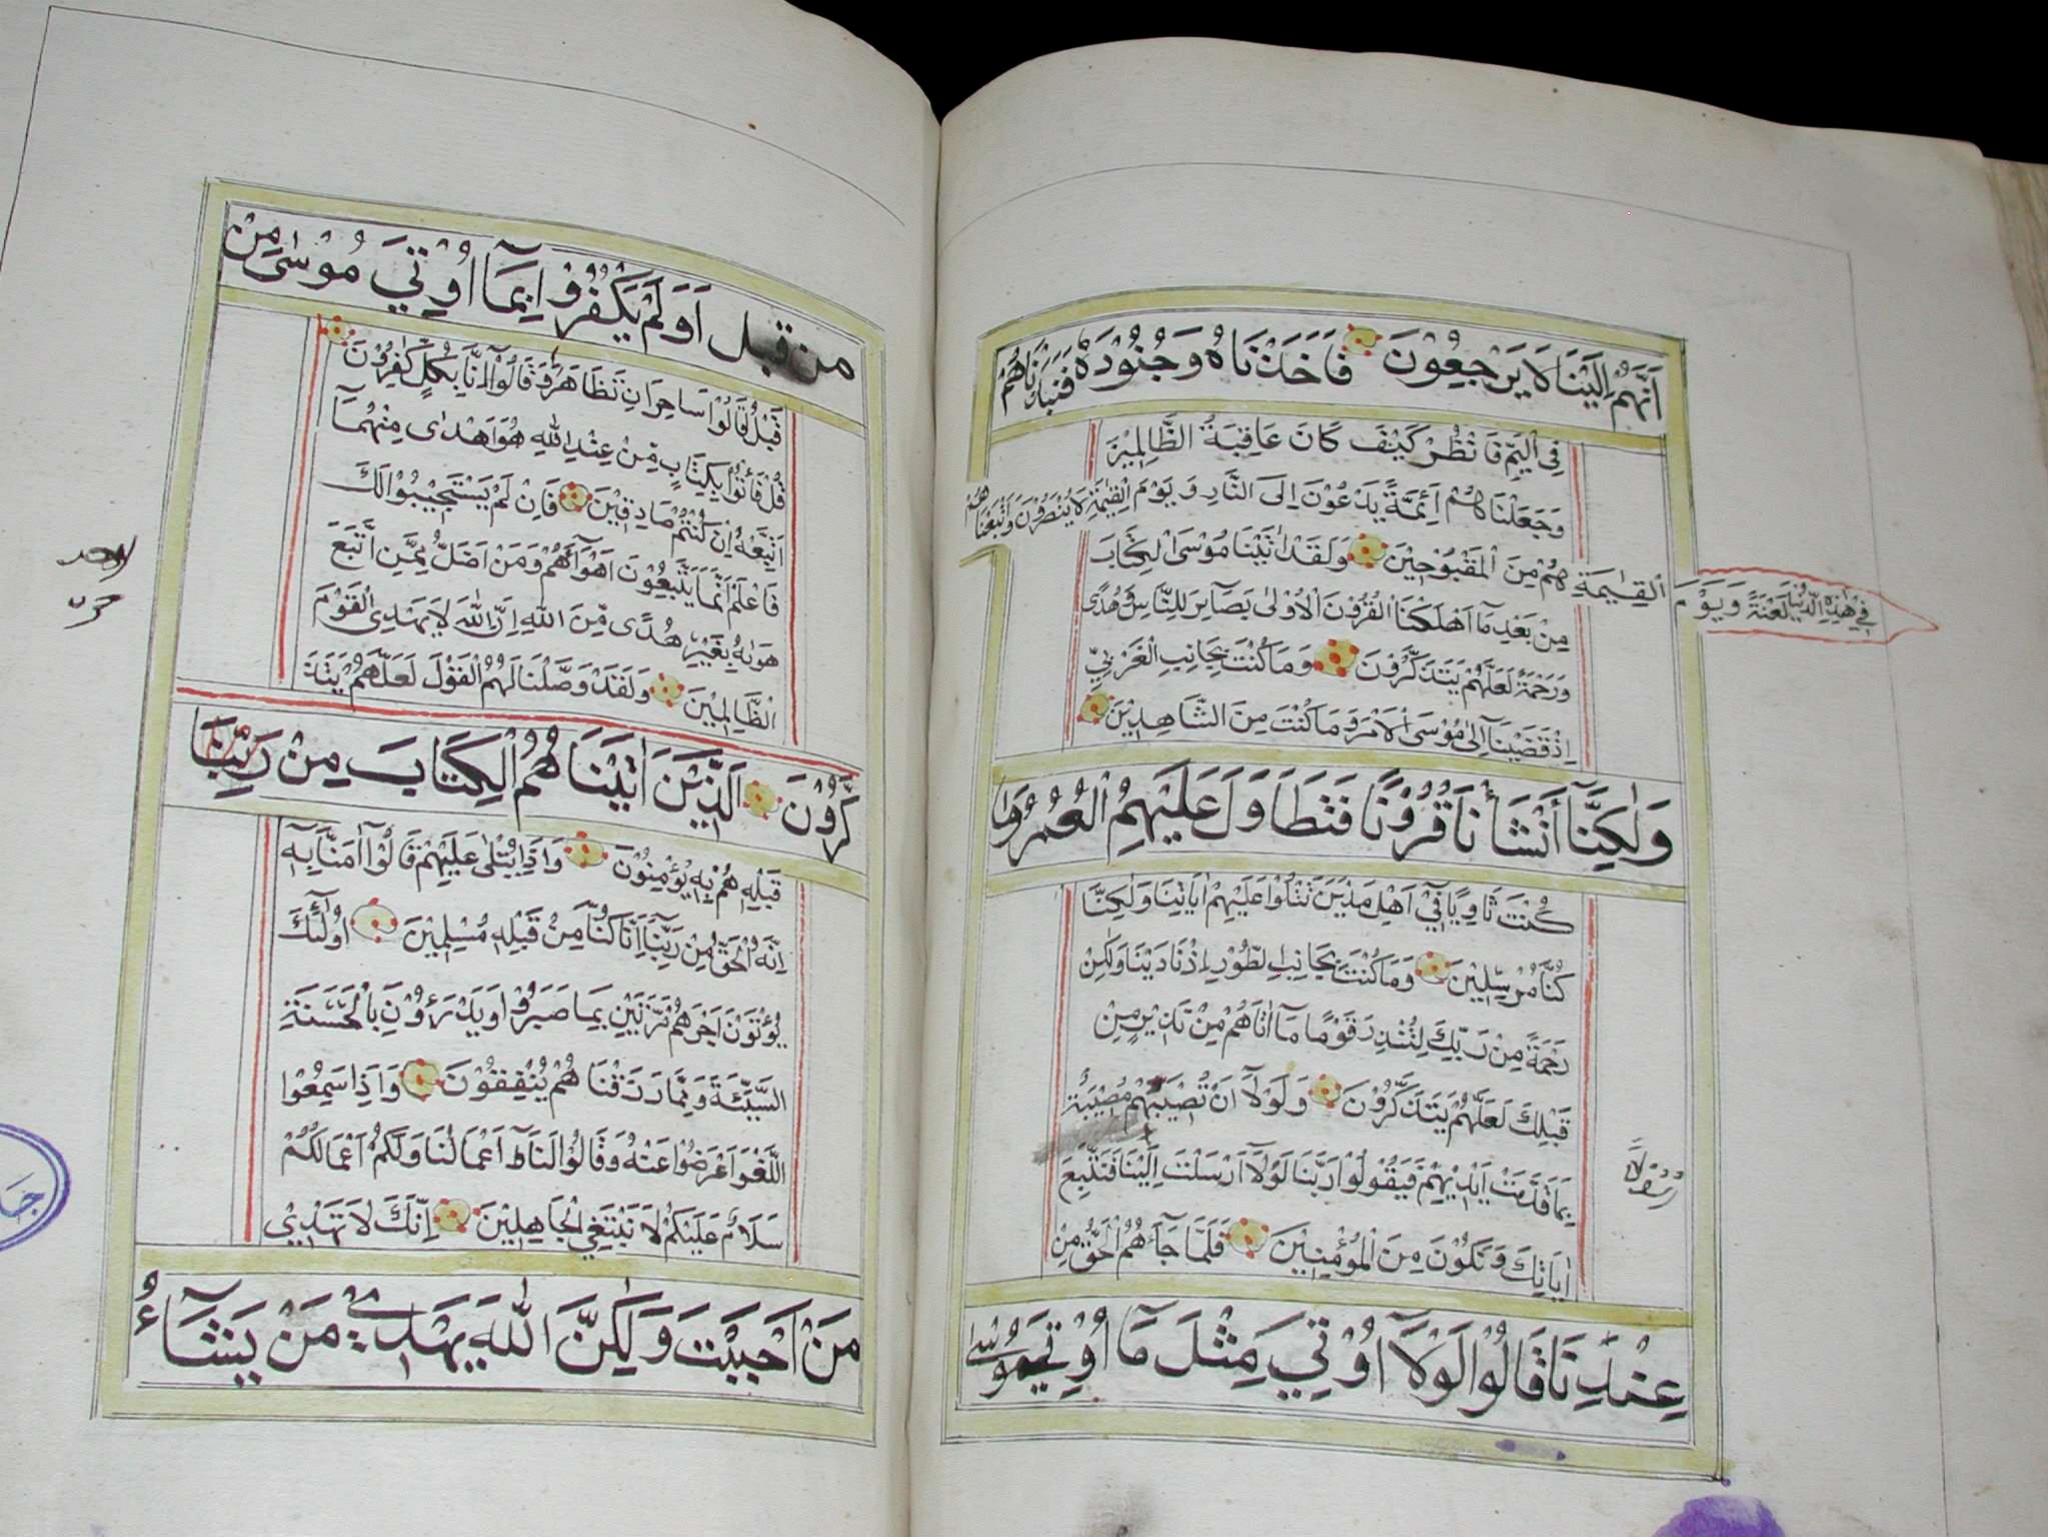 اَنَّهُمْ اِلَيْنَا لَا يَرْجِعُوْنَ فَاَخَذْنَاهُ وَجُنُوْدَهُ فَنَبَذْنَاهُمْ
فِي الْيَمِّ فَانْظُرْ كَيْفَ كَانَ عَاقِبَةُ الظَّالِمِيْنَ
وَجَعَلْنَا هُمْ اَئِمَّةً يَدْعُوْنَ اِلَى النَّارِ وَيَوْمَ الْقِيٰمَةِ لَا يُنْصَرُوْنَ وَاَتْبَعْنَا هُمْ
فِيْ هٰذِهِ الدُّنْيَا لَعْنَةً وَيَوْمَ الْقِيٰمَةِ هُمْ مِنَ الْمَقْبُوْحِيْنَ وَلَقَدْ اٰتَيْنَا مُوْسَى الْكِتَابَ
مِنْ بَعْدِ مَا اَهْلَكْنَا الْقُرُوْنَ الْاُوْلٰى بَصَائِرَ لِلنَّاسِ وَهُدًى
وَرَحْمَةً لَعَلَّهُمْ يَتَذَكَّرُوْنَ وَمَا كُنْتَ بِجَانِبِ الْغَرْبِيِّ
اِذْ قَضَيْنَا اِلٰى مُوْسَى الْاَمْرَ وَمَا كُنْتَ مِنَ الشَّاهِدِيْنَ
وَلٰكِنَّا اَنْشَأْنَا قُرُوْنًا فَتَطَاوَلَ عَلَيْهِمُ الْعُمُرُ وَمَا
كُنْتَ ثَاوِيًا فِيْ اَهْلِ مَدْيَنَ تَتْلُوْا عَلَيْهِمْ اٰيَاتِنَا وَلٰكِنَّا
كُنَّا مُرْسِلِيْنَ وَمَا كُنْتَ بِجَانِبِ الطُّوْرِ اِذْ نَادَيْنَا وَلٰكِنْ
رَحْمَةً مِنْ رَبِّكَ لِتُنْذِرَ قَوْمًا مَا اَتَاهُمْ مِنْ نَذِيْرٍ مِنْ
قَبْلِكَ لَعَلَّهُمْ يَتَذَكَّرُوْنَ وَلَوْلَا اَنْ تُصِيْبَهُمْ مُصِيْبَةٌ
بِمَا قَدَّمَتْ اَيْدِيْهِمْ فَيَقُوْلُوْا رَبَّنَا لَوْلَا اَرْسَلْتَ اِلَيْنَا فَنَتَّبِعَ
رَسُوْلًا
اٰيَاتِكَ وَنَكُوْنَ مِنَ الْمُؤْمِنِيْنَ فَلَمَّا جَاءَهُمُ الْحَقُّ مِنْ
عِنْدِنَا قَالُوْا لَوْلَا اُوْتِيَ مِثْلَ مَا اُوْتِيَ مُوْسٰى
مِنْ قَبْل اَوَلَمْ يَكْفُرُوْا بِمَا اُوْتِيَ مُوْسٰى مِنْ
قَبْلُ قَالُوْا سَاحِرَانِ تَظَاهَرَا وَقَالُوْا اِنَّا بِكُلٍّ كٰفِرُوْنَ
قُلْ فَأْتُوْا بِكِتَابٍ مِّنْ عِنْدِ اللهِ هُوَ اَهْدٰى مِنْهُمَا
اَتَّبِعْهُ اِنْ كُنْتُمْ صَادِقِيْنَ فَاِنْ لَمْ يَسْتَجِيْبُوْا لَكَ
فَاعْلَمْ اَنَّمَا يَتَّبِعُوْنَ اَهْوَاءَهُمْ وَمَنْ اَضَلُّ مِمَّنِ اتَّبَعَ
هَوٰىهُ بِغَيْرِ هُدًى مِّنَ اللهِ اِنَّ اللهَ لَا يَهْدِى الْقَوْمَ
الظَّالِمِيْنَ وَلَقَدْ وَصَّلْنَا لَهُمُ الْقَوْلَ لَعَلَّهُمْ يَتَذَ
كَّرُوْنَ اَلَّذِيْنَ اٰتَيْنَا هُمُ الْكِتَابَ مِنْ
قَبْلِهٖ هُمْ بِهٖ يُؤْمِنُوْنَ وَاِذَا يُتْلٰى عَلَيْهِمْ قَالُوْا اٰمَنَّا بِهٖ
اِنَّهُ الْحَقُّ مِنْ رَبِّنَا اِنَّا كُنَّا مِنْ قَبْلِهٖ مُسْلِمِيْنَ اُولٰئِكَ
يُؤْتَوْنَ اَجْرَهُمْ مَرَّتَيْنِ بِمَا صَبَرُوْا وَيَدْرَؤُوْنَ بِالْحَسَنَةِ
السَّيِّئَةَ وَمِمَّا رَزَقْنَا هُمْ يُنْفِقُوْنَ وَاِذَا سَمِعُوْا
اللَّغْوَ اَعْرَضُوْا عَنْهُ وَقَالُوْا لَنَا اَعْمَالُنَا وَلَكُمْ اَعْمَالُكُمْ
سَلَامٌ عَلَيْكُمْ لَا نَبْتَغِي الْجَاهِلِيْنَ اِنَّكَ لَا تَهْدِيْ
مَنْ اَحْبَبْتَ وَلٰكِنَّ اللهَ يَهْدِيْ مَنْ يَشَاءُ